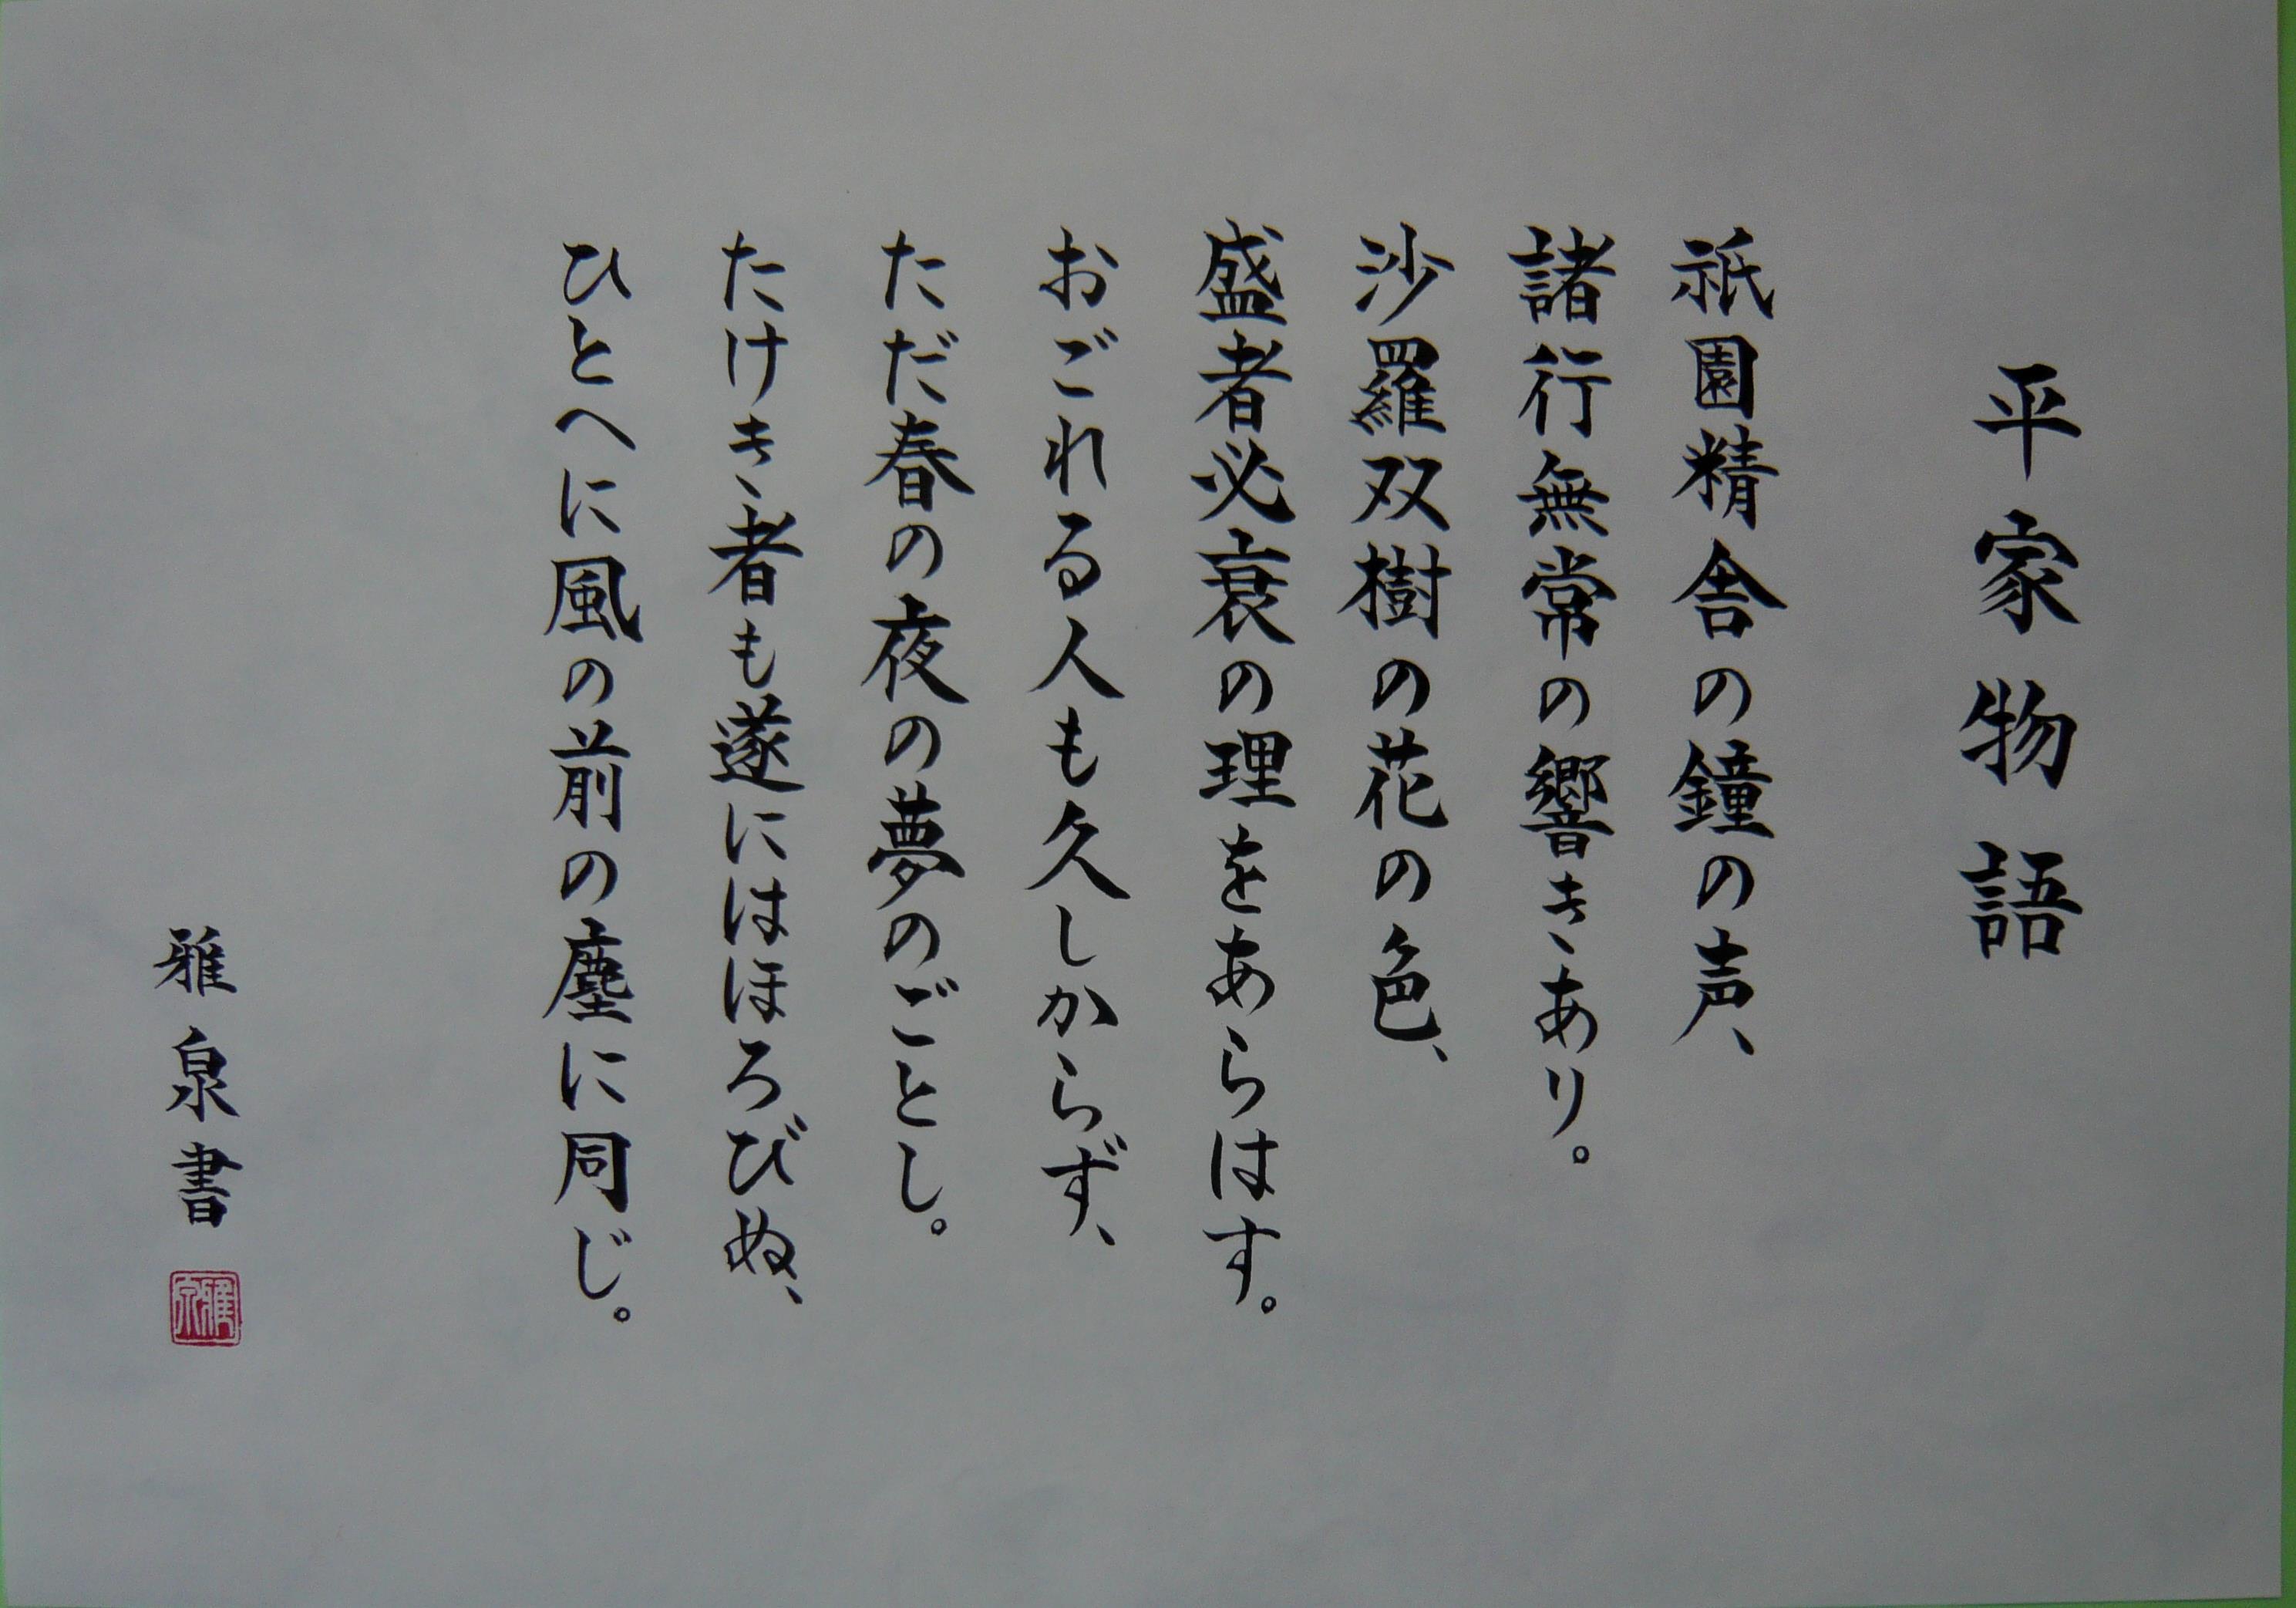 平家物語
祇園精舎の鐘の声、
諸行無常の響きあり。
沙羅双樹の花の色、
盛者必衰の理をあらはす。
おごれる人も久しからず、
ただ春の夜の夢のごとし。
たけき者も遂にはほろびぬ、
ひとへに風の前の塵に同じ。
雅泉書
雅泉